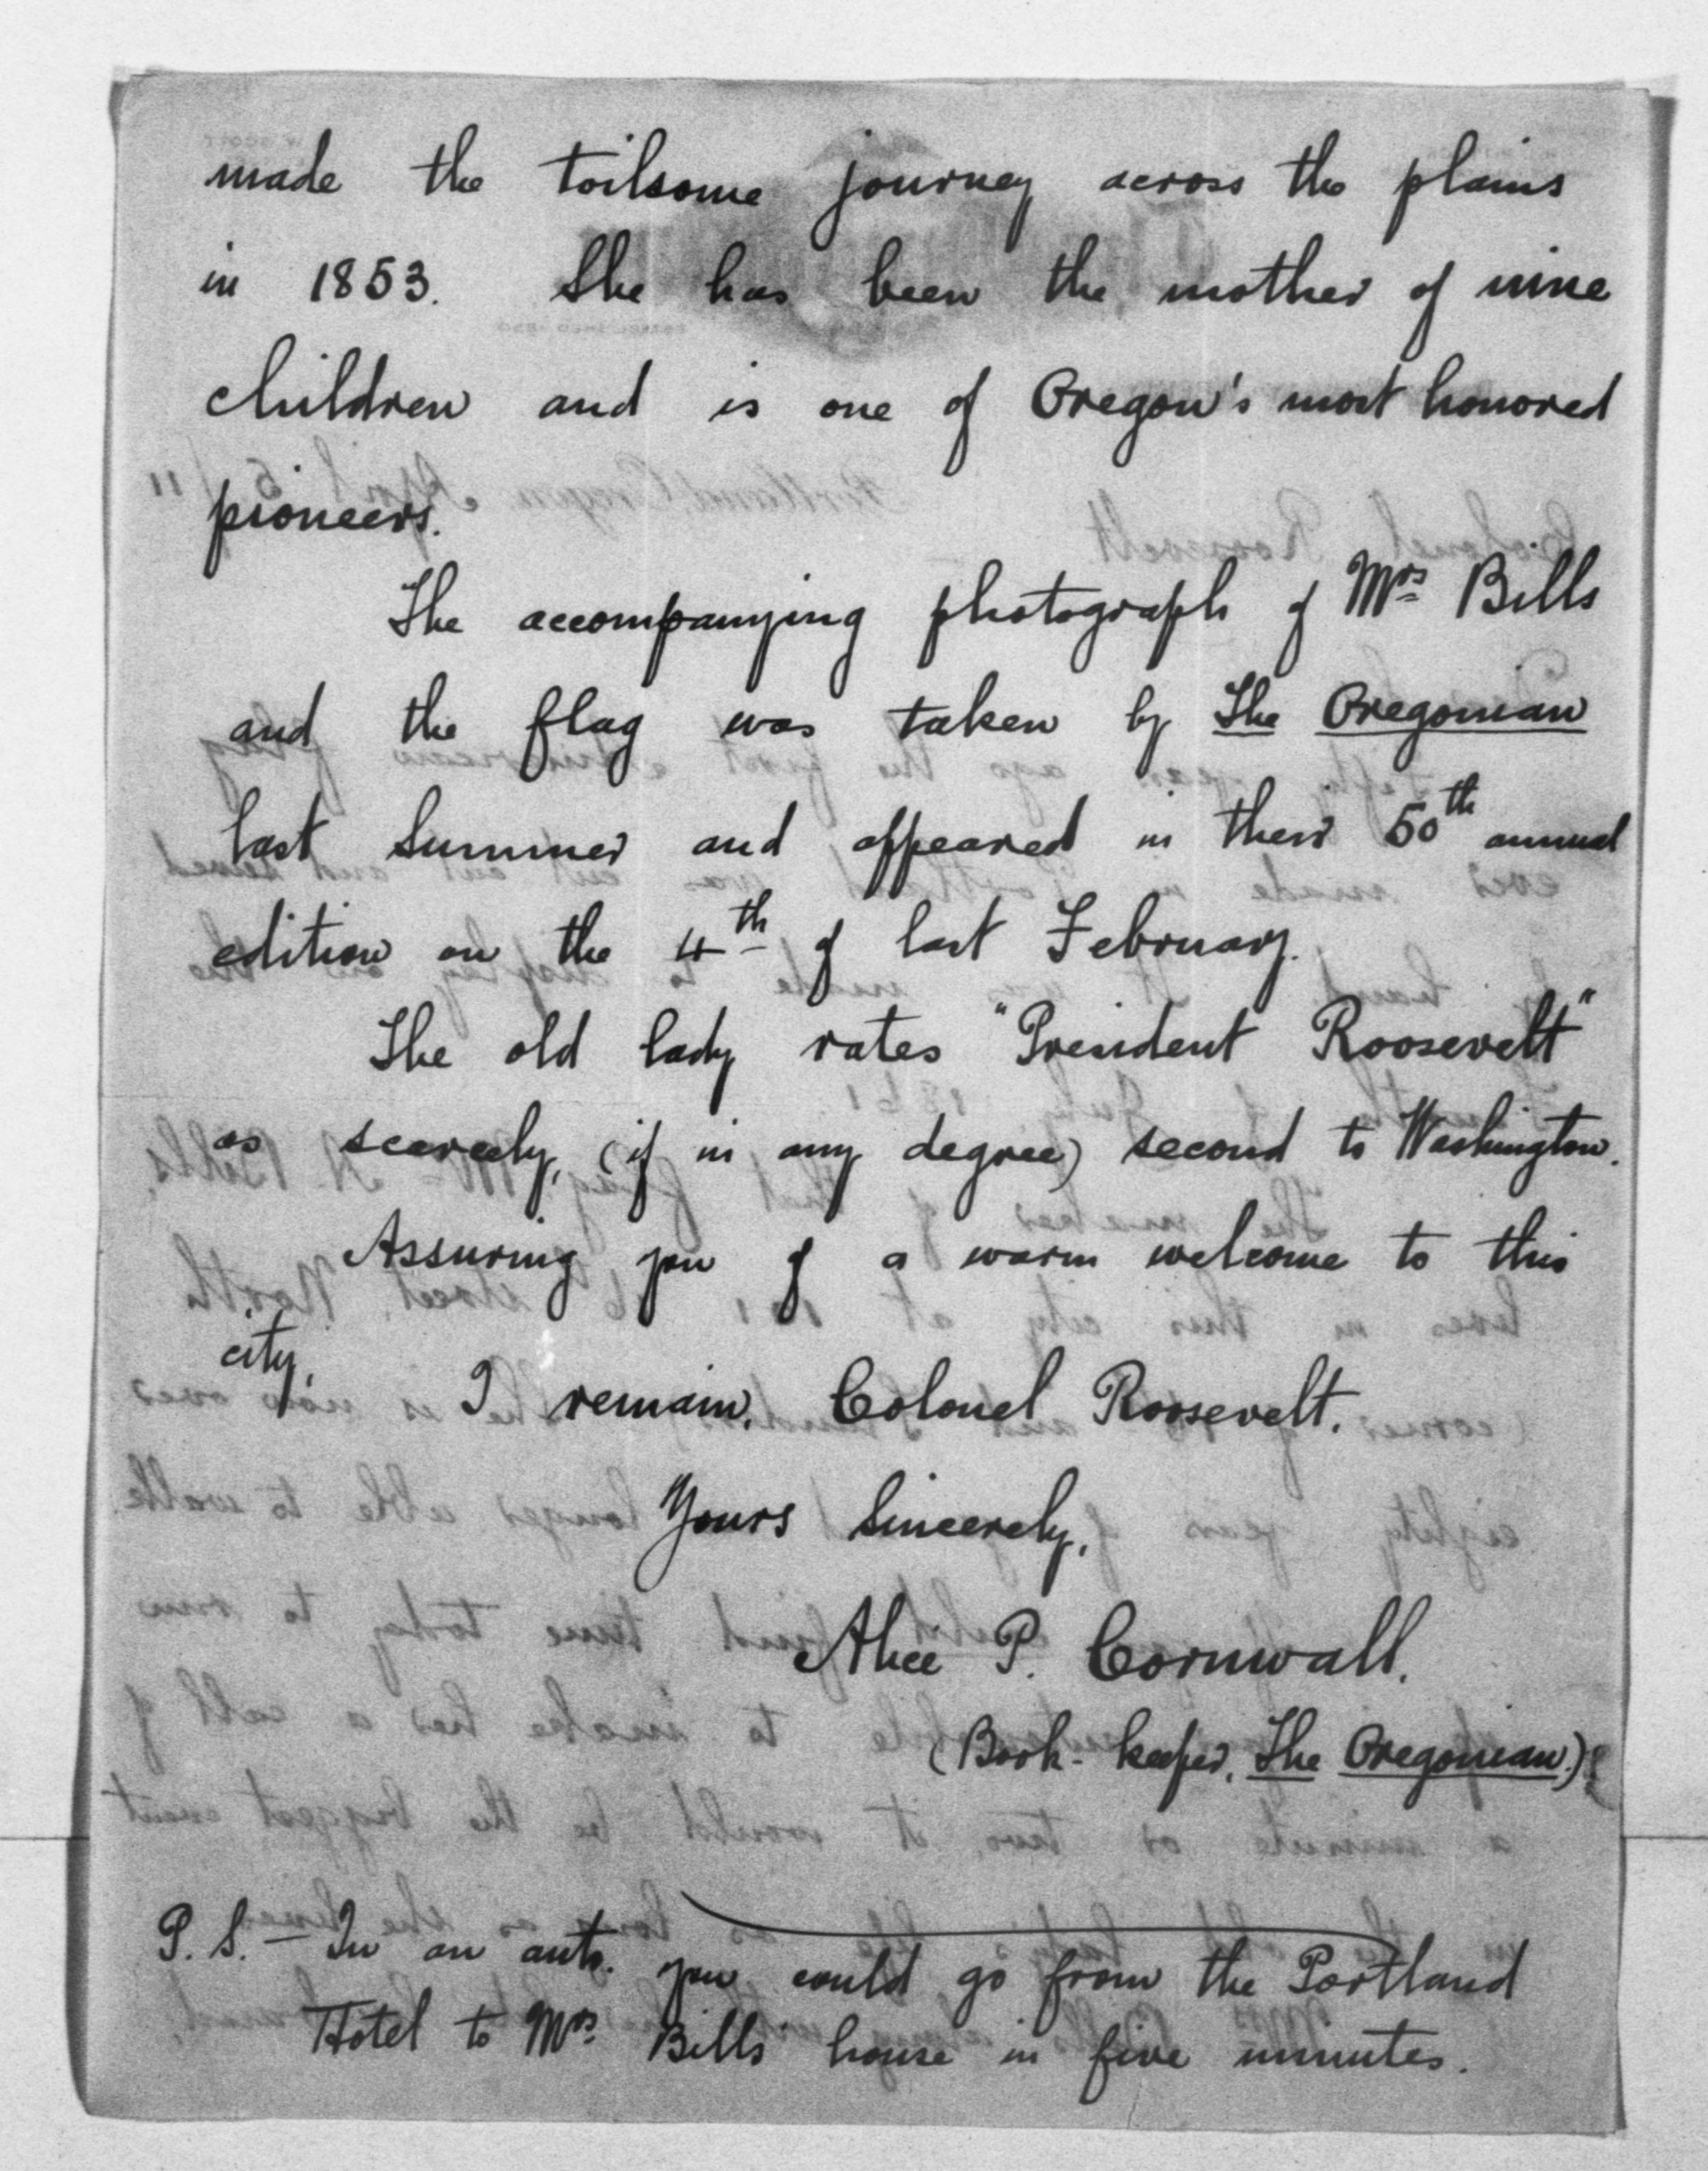 made the toilsome journey across the plains
in 1853. She has been the mother of nine
children and is one of Oregon's most honored
pioneers.
The accompanying photograph of Mrs Bills
and the flag was taken by The Oregonian
last Summer and appeared in their 50th annual
edition on the 4th of last February.
The old lady rates "President Roosevelt"
as scarcely, (if in any degree) second to Washington.
Assuring you of a warm welcome to this
city,
I remain, Colonel Roosevelt.
Yours Sincerely,
Alice P. Cornwall.
(Book-keeper, The Oregonian.)
P. S. — In an auto. you could go from the Portland
Hotel to Mrs Bills' house in five minutes.